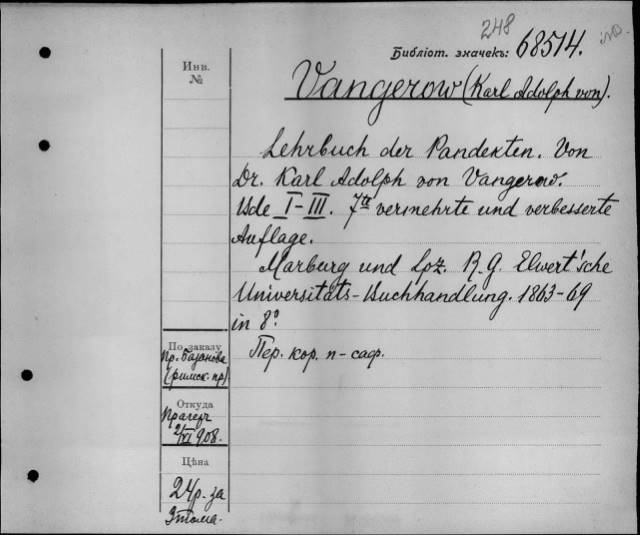 248
Библіот. значекъ: 68514.
Инв.
№
Vangerow (Karl Adolph von).
Lehrbuch der Pandekten. Von
Dr. Karl Adolph von Vangerow.
Bde I-III. 7te vermehrte und verbesserte
Auflage.
Marburg und Lpz. R. G. Elwert'sche
Universitäts-Buchhandlung. 1863-69
in 8º.
По заказу
Пр. Базанова
(римск. пр)
Пер. кор. п-саф.
Откуда
Прагеръ
2/XI 908.
Цѣна
24р. за
3 тома.